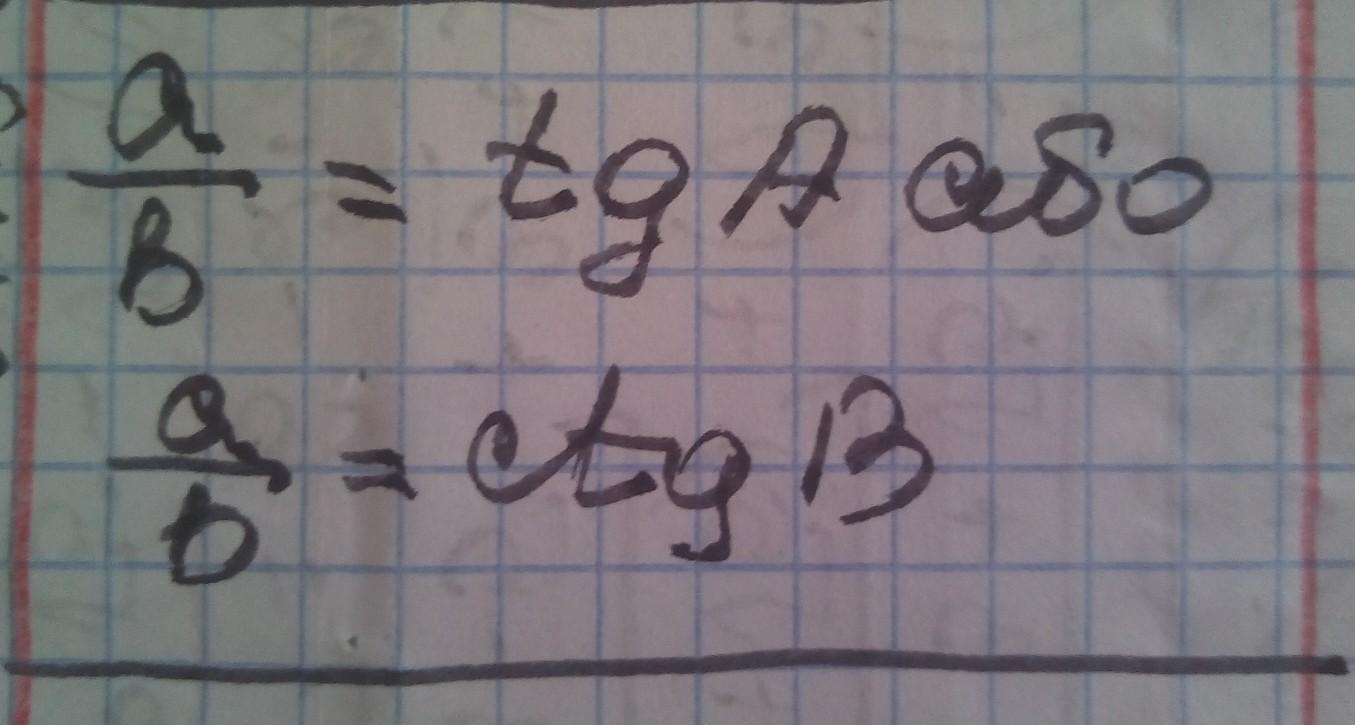 a/b = tg A або
a/b = ctg B